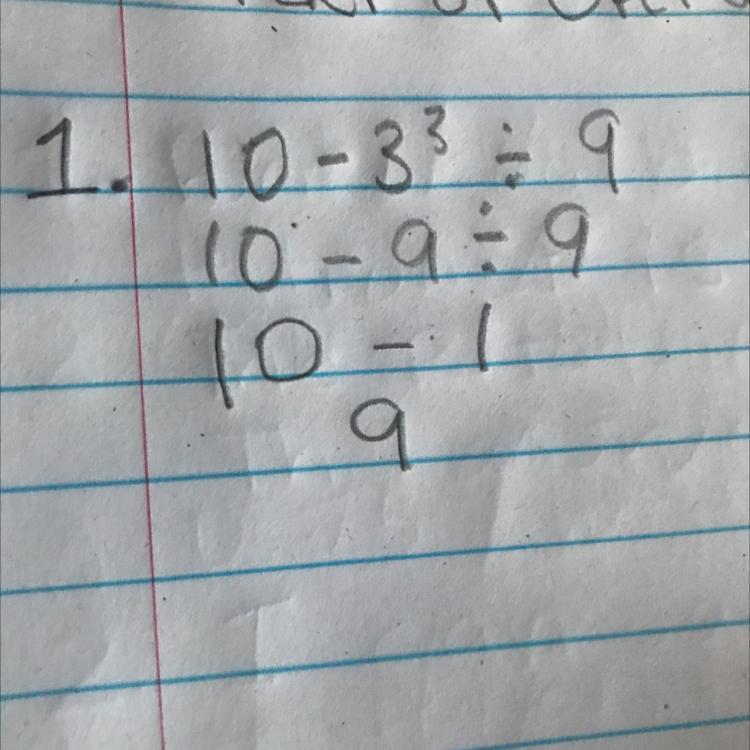 1. 10 - 3³ ÷ 9
10 - 9 ÷ 9
10 - 1
9